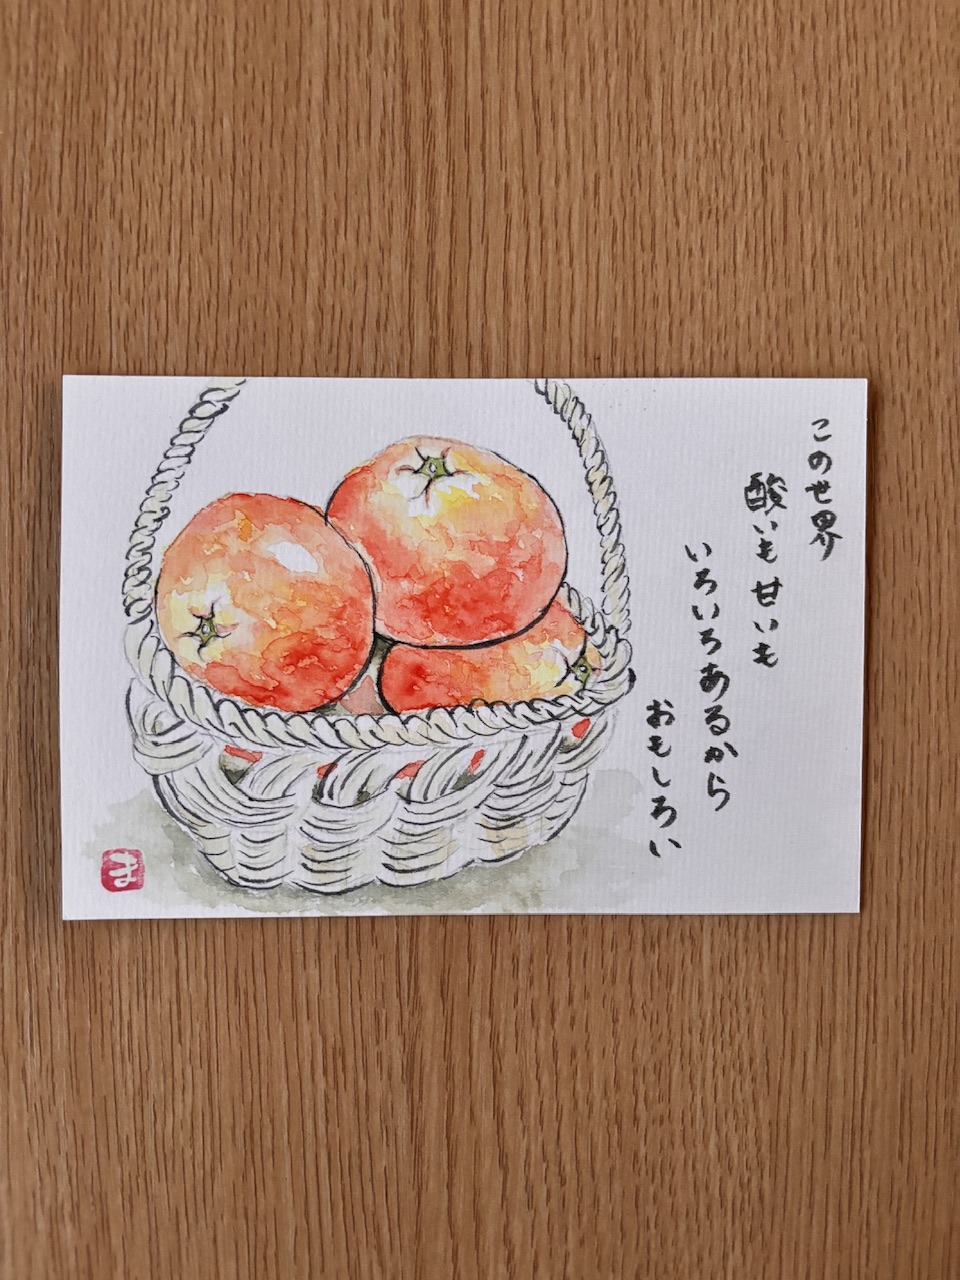 この世界
酸いも甘いも
いろいろあるから
おもしろい
ま